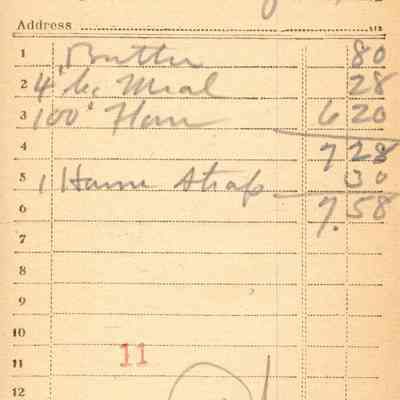 Address
1 Butter 80
2 4 lc Meal 28
3 100 Flour 6 20
4 7 28
5 1 Hame Strap 30
6 7.58
7
8
9
10
11 11
12